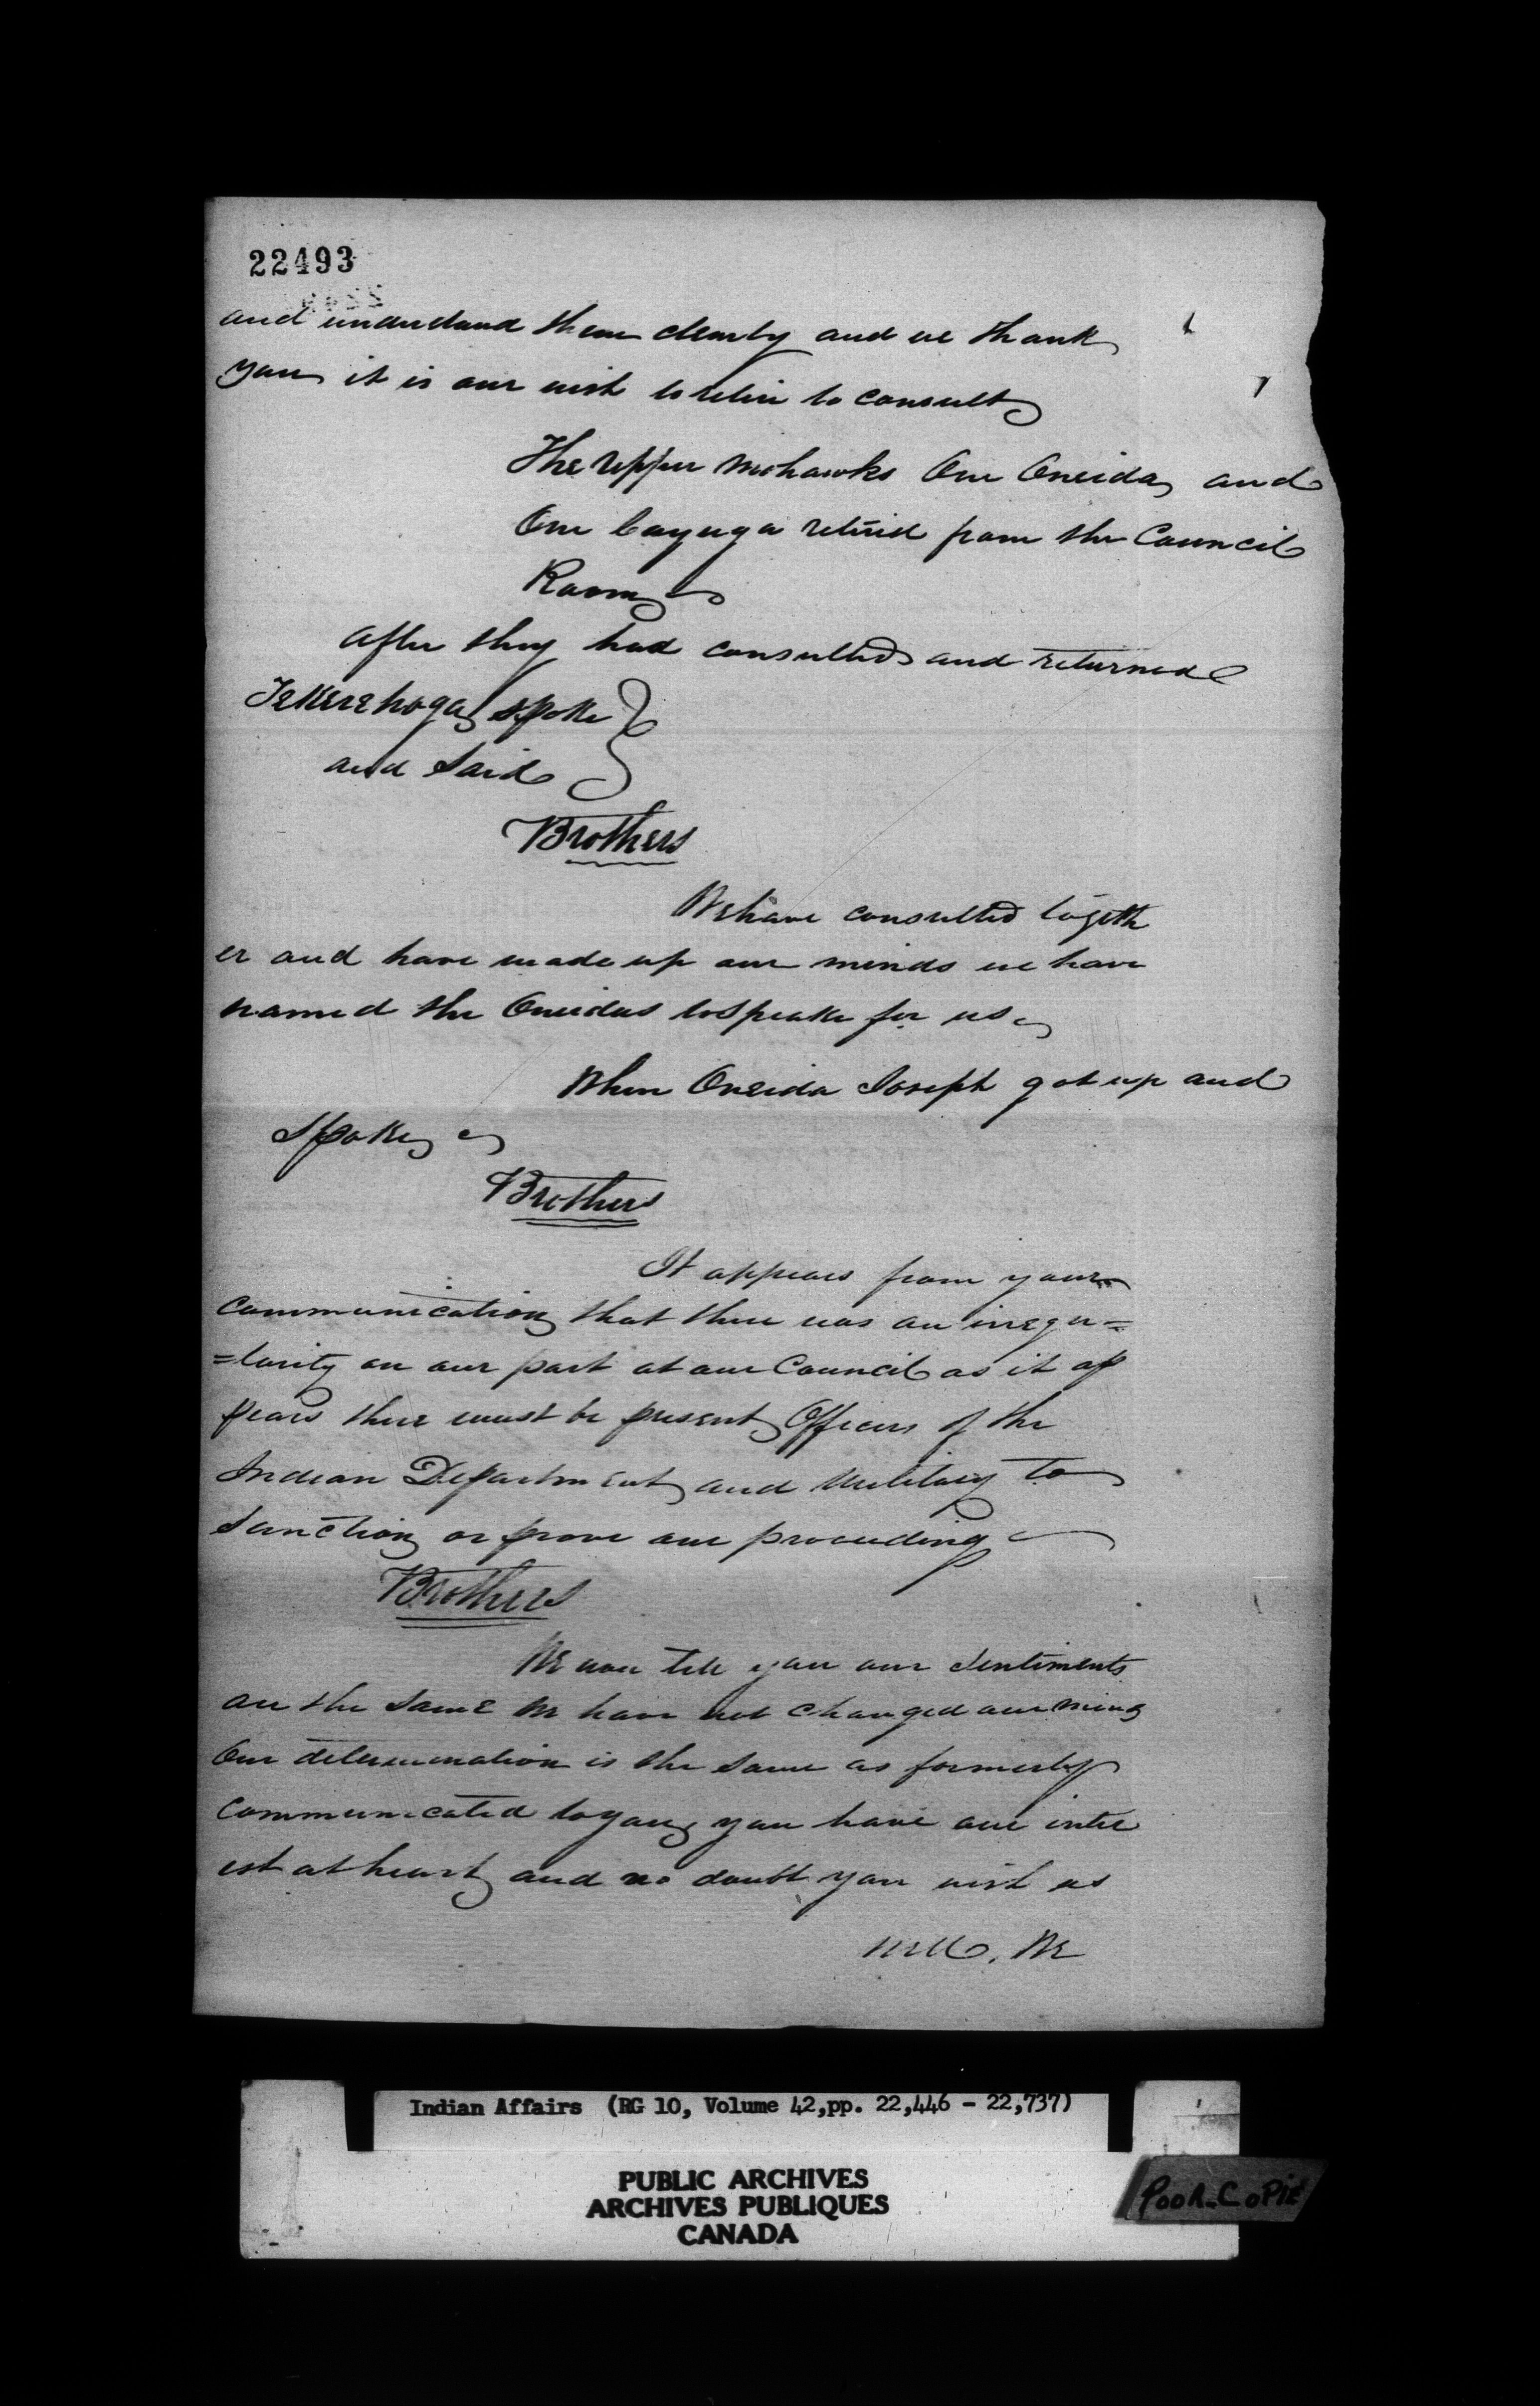 22493
and understand them clearly and we thank
you it is our wish to retire to consult
The Upper Mohawks One Oneida and
One Cayuga retired from the Council
Room
after they had consulted and returned
Tekerehoga spoke
and Said
Brothers
We have consulted togeth
er and have made up our minds we have
named the Oneidas to Speake for us
When Oneida Joseph got up and
Spoke
Brothers
It appears from your
Communication that there was an irregu=
=larity on our part at our Council as it ap
pears there must be present Officers of the
Indian Department and Military to
Sanction or prove our proceeding
Brothers
We now tell you our Sentiments
are the Same We have not changed our mind
Our determination is the Same as formerly
Communicated to you, you have our inter
est at heart and no doubt you wish us
well. We
Indian Affairs (RG 10, Volume 42,pp. 22,446 - 22,737)
PUBLIC ARCHIVES
ARCHIVES PUBLIQUES
CANADA
POOR COPIE